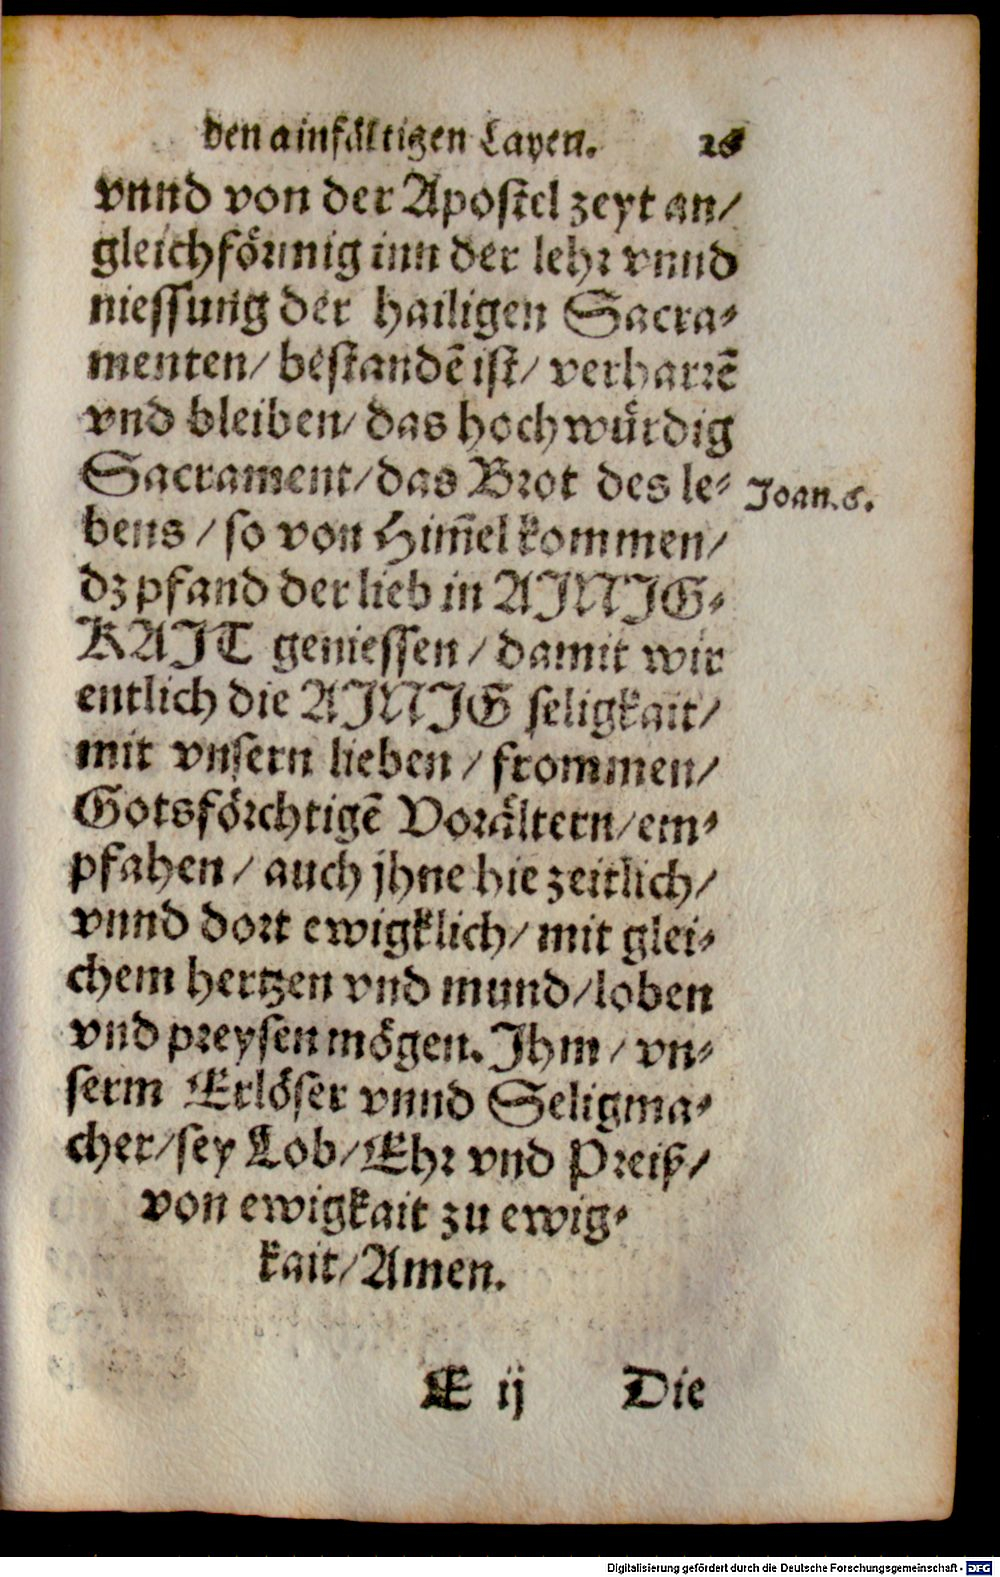 den ainfältigen Layen. 26
vnnd von der Apostel zeyt an/
gleichförmig inn der lehr vnnd
niessung der hailigen Sacra-
menten/ bestandē ist/ verharrē
vnd bleiben/ das hochwürdig
Sacrament/ das Brot des le-
Joan. 6.
bens / so von Him̄el kommen/
dz pfand der lieb in AINIG-
KAIT geniessen / damit wir
entlich die AINIG seligkait/
mit vnsern lieben / frommen/
Gotsförchtigē Vorältern/ em-
pfahen / auch jhne hie zeitlich/
vnnd dort ewigklich/ mit glei-
chem hertzen vnd mund/ loben
vnd preysen mögen. Ihm / vn-
serm Erlöser vnnd Seligma-
cher/ sey Lob/ Ehr vnd Preiß/
von ewigkait zu ewig-
kait/ Amen.
E ij Die
Digitalisierung gefördert durch die Deutsche Forschungsgemeinschaft - DFG